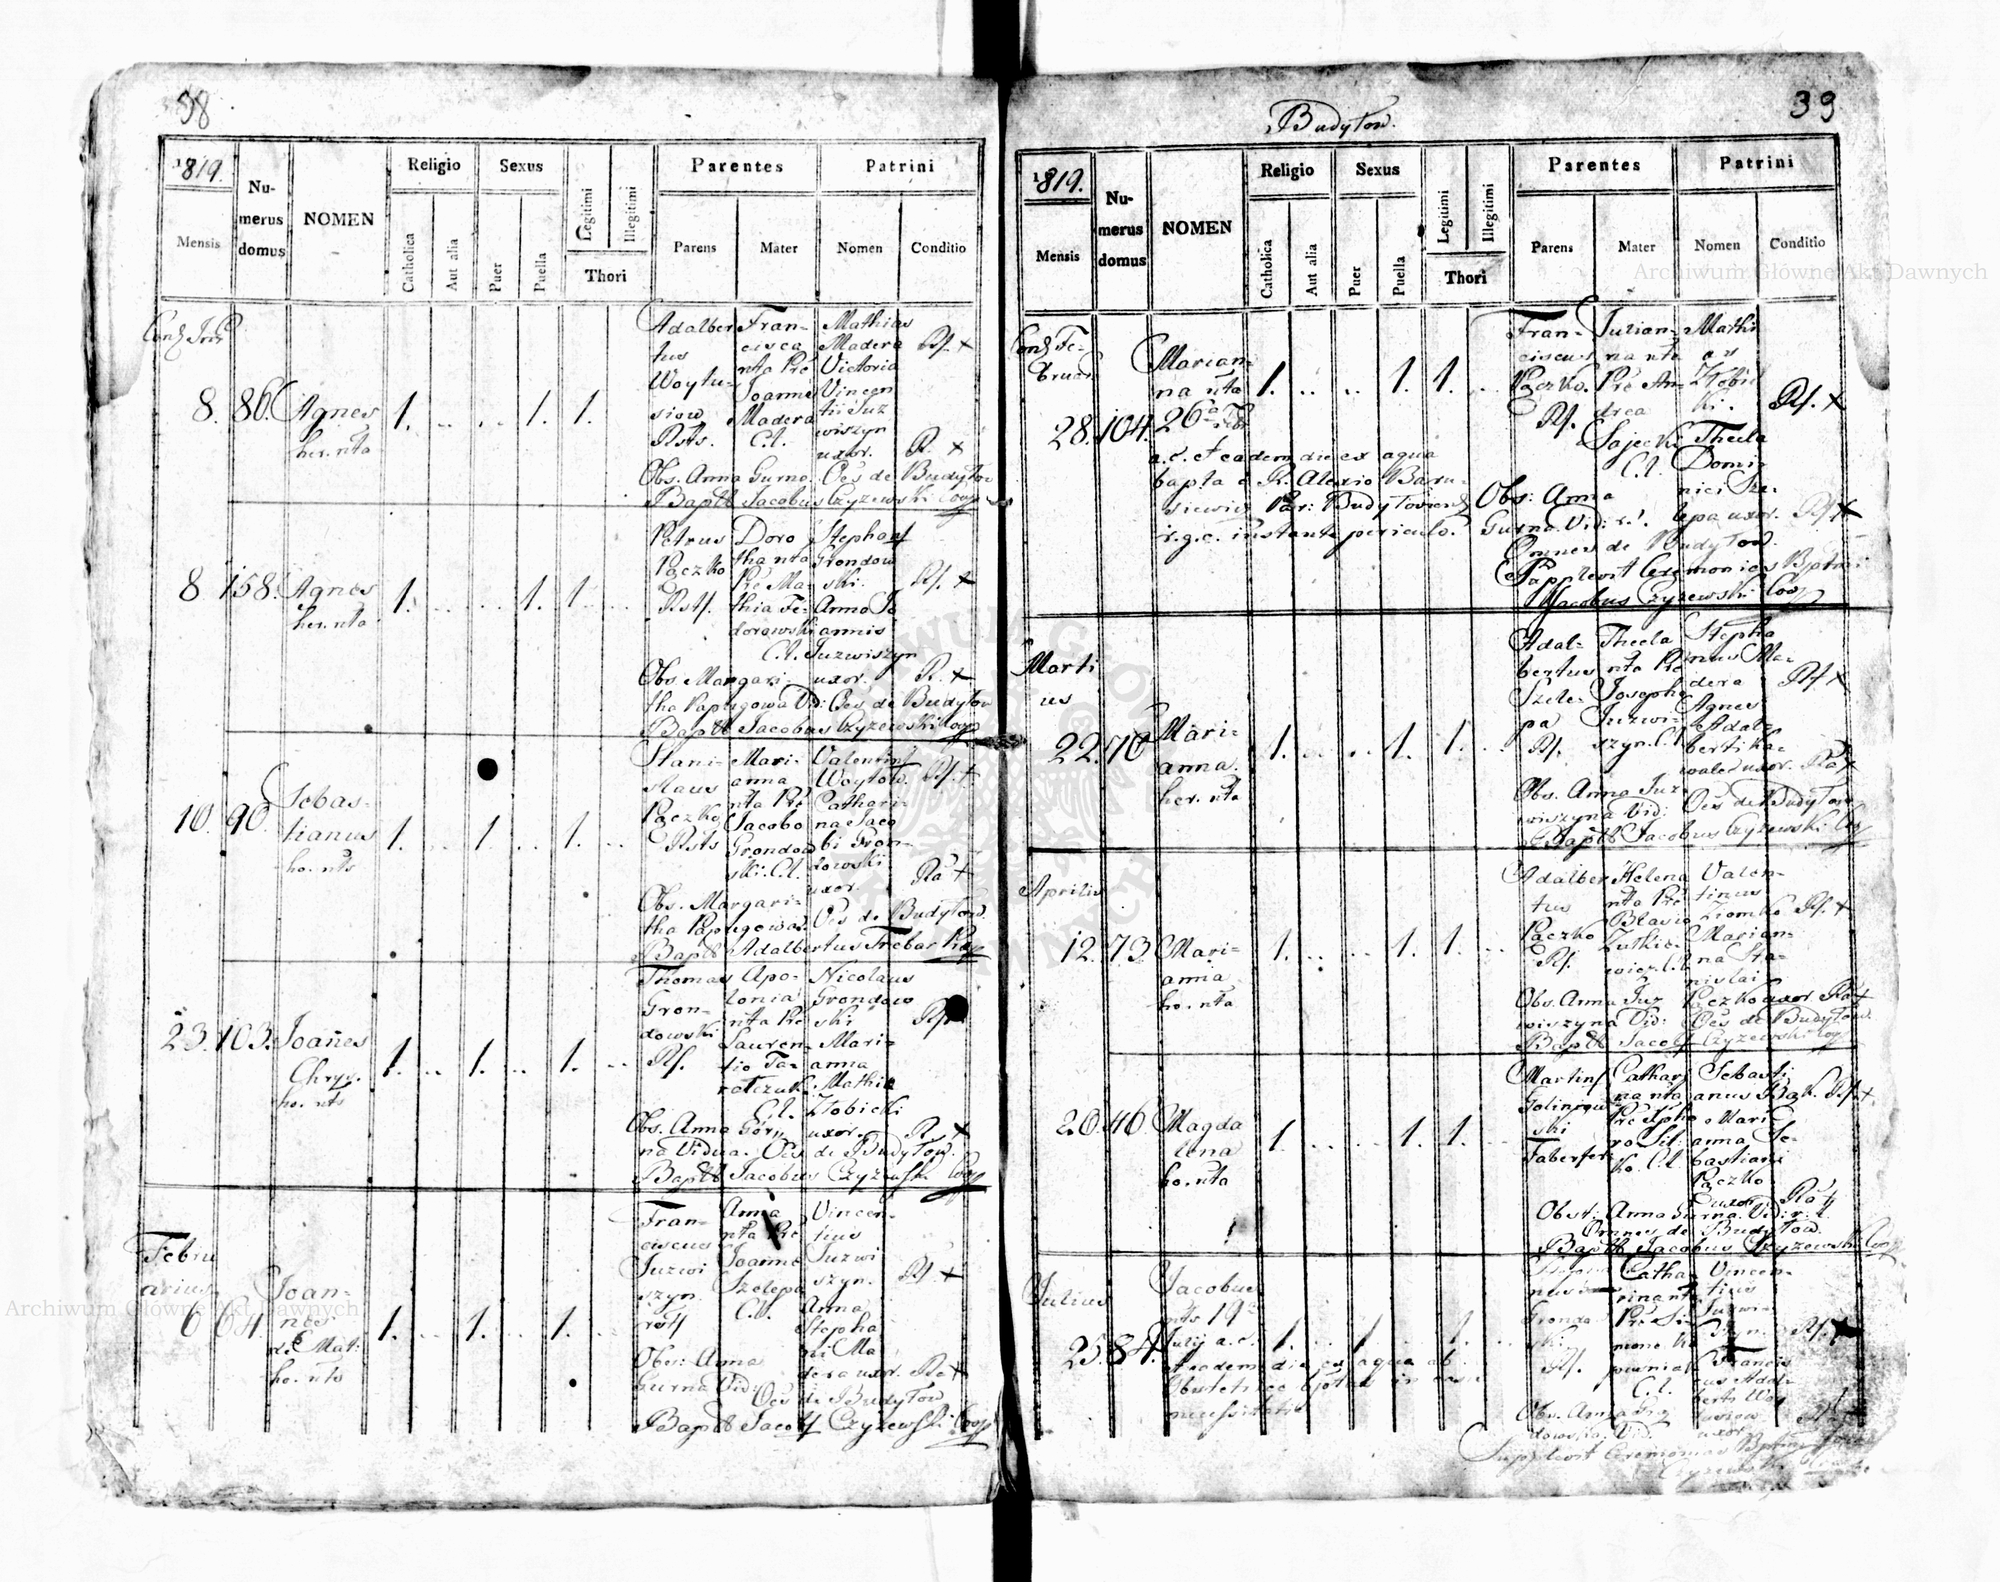 38
1819.
Mensis
Nu-
merus
domus
NOMEN
Religio
Catholica
Aut alia
Sexus
Puer
Puella
Legitimi
Illegitimi
Thori
Parentes
Parens
Mater
Patrini
Nomen
Conditio
8. 86. Agnes
her. nta
1. .. .. 1. 1.
Adalber
tus
Woytu-
siow
Rsts.
Fran-
cisca
nta Pre
Joanne
Madera
C.l.
Mathias
Madera
Victoria
Vincen
tii Juz
wiszyn
uxor.
Rf. +
R. +
Obs. Anna Gurna. Oes de Budytow
Bapt Jacobus Czyzewski Coop
8 158. Agnes
her. nta
1. .. .. 1. 1. ..
Petrus
Pączko
Rstf.
Doro
tha nta
Pre Ma-
thia Fe-
dorowski
C.l.
Stephanf
Grondow
ski.
Anna Jo
annis
Juzwiszyn
uxor.
Rf. +
R. +
Obs. Margari-
tha Papugowa Vid: Oes de Budytow
Bapt Jacobus Czyzewski Coop
10. 90. Sebas-
tianus
ho. nts
1. .. 1. .. 1. ..
Stani-
slaus
Pączko
Rsts
Mari-
anna
nta Pre
Jacobo
Grondow
ski. C.l.
Valentinf
Woytow.
Cathari-
na Jaco
bi Gron-
dowski
uxor.
Rf. +
Ra +
Obs. Margari-
tha Papugowa. Oes de Budytow.
Bapt Adalbertus Trebar
23. 103. Joannes
Chryz.
ho. nts
1. .. 1. .. 1. ..
Thomas
Gron-
dowski
Rf.
Apo-
lonia
nta Pre
Lauren-
tio Ta-
ratczuk.
C.l.
Nicolaus
Grondow
ski
Mari-
anna
Mathia
Złobicki
uxor.
Rf.
R. +
Obs. Anna Góry
na Vidua. Oes de Budytow.
Bapt Jacobus Czyzewsk. Coop
Febru
arius
6 64. Joan-
nes
de Mat:
ho. nts
1. .. 1. .. 1. ..
Fran-
ciscus
Juzwi
szyn.
rstf
Anna
nta Pre
Joanne
Szelepa
C.l.
Vincen-
tius
Juzwi
szyn.
Anna
Stepha
ni Ma
dera uxor.
Rf. +
Ra +
Obs: Anna
Gurna Vid:
Oes de Budytow
Bapt Jacobf Czyzewsk: Coop
Budytow.
39
1819.
Mensis
Nu-
merus
domus
NOMEN
Religio
Catholica
Aut alia
Sexus
Puer
Puella
Legitimi
Illegitimi
Thori
Parentes
Parens
Mater
Patrini
Nomen
Conditio
28. 104. Marian-
na nta
26
1. .. .. 1. 1. ..
a.c. et eadem die ex aqua
bapta e R. Alexio Baru-
siewicz Par: Budytoviensi
r.g.c. instante periculo.
Fran-
ciscus
Pączko.
Rf.
Julian-
na nta
Pre An-
drea
Sajecki
C.l.
Mathi
as
Złobic
ki.
Thecla
Domi-
nici Sze-
lepa uxor.
Rf. +
Rf. +
Obs: Anna
Gurna Vid: r.l.
Omnes de Budytow.
Supplevit Ceremonias Bptmi
Jacobus Czyzewski Coop
Marti
us
22. 70 Mari-
anna.
her. nta
1. .. .. 1. 1. ..
Adal-
bertus
Szele-
pa
Rf.
Thecla
nta Pre
Josepho
Juzwi-
szyn. C.l.
Stepha
nus Ma-
dera
Agnes
Adal-
berti Ka-
wale uxor.
Rf. +
Ra +
Obs. Anna Juz-
wiszyna Vid: Oes de Budytow
Bapt Jacobus Czyzewski Coop
Aprilis
12. 73. Mari-
anna
ho. nta
1. .. .. 1. 1. ..
Adalber
tus
Pączko
Rf.
Helena
nta Pre
Blasio
Zutkie-
wicz. C.l.
Valen-
tinus
Ziomko
Marian-
na Sta-
nislai
Pączko uxor.
Rf. +
Ra +
Obs. Anna Juz
wiszyna Vid: Oes de Budytow.
Bapt Jacobf Czyzewski Coop
20. 46. Magda
lena
ho. nta
1. .. .. 1. 1. ..
Martinf
Goliniow
ski
Faber fer:
Cathar
na nta
Pre Xpho
ro Sil-
ko. C.l.
Sebasti
anus Bak.
Mari-
anna Se-
bastiani
Pączko
uxor.
Rf. +
Ra +
Obst: Anna Gurna Vid: r.l.
Omnes de Budytow.
Bapt Jacobus Czyzewski Coop
Julius
25. 84. Jacobus
nts 19
Julij a.c.
1. .. 1. .. 1. ..
Eadem die ex aqua ab
Obstetrice bptus in casu
necessitatis
Rf.
Catha-
rina nta
Pre Si-
mone
C.l.
Vincen-
tius
Juzwi-
szyn.
Francis
Adal-
berti Woy
uxor
Rf. +
Obs. Anna
dowska. Vid:
Supplevit Ceremonias Bptmi
Czyzewski
Archiwum Główne Akt Dawnych
Archiwum Główne Akt Dawnych